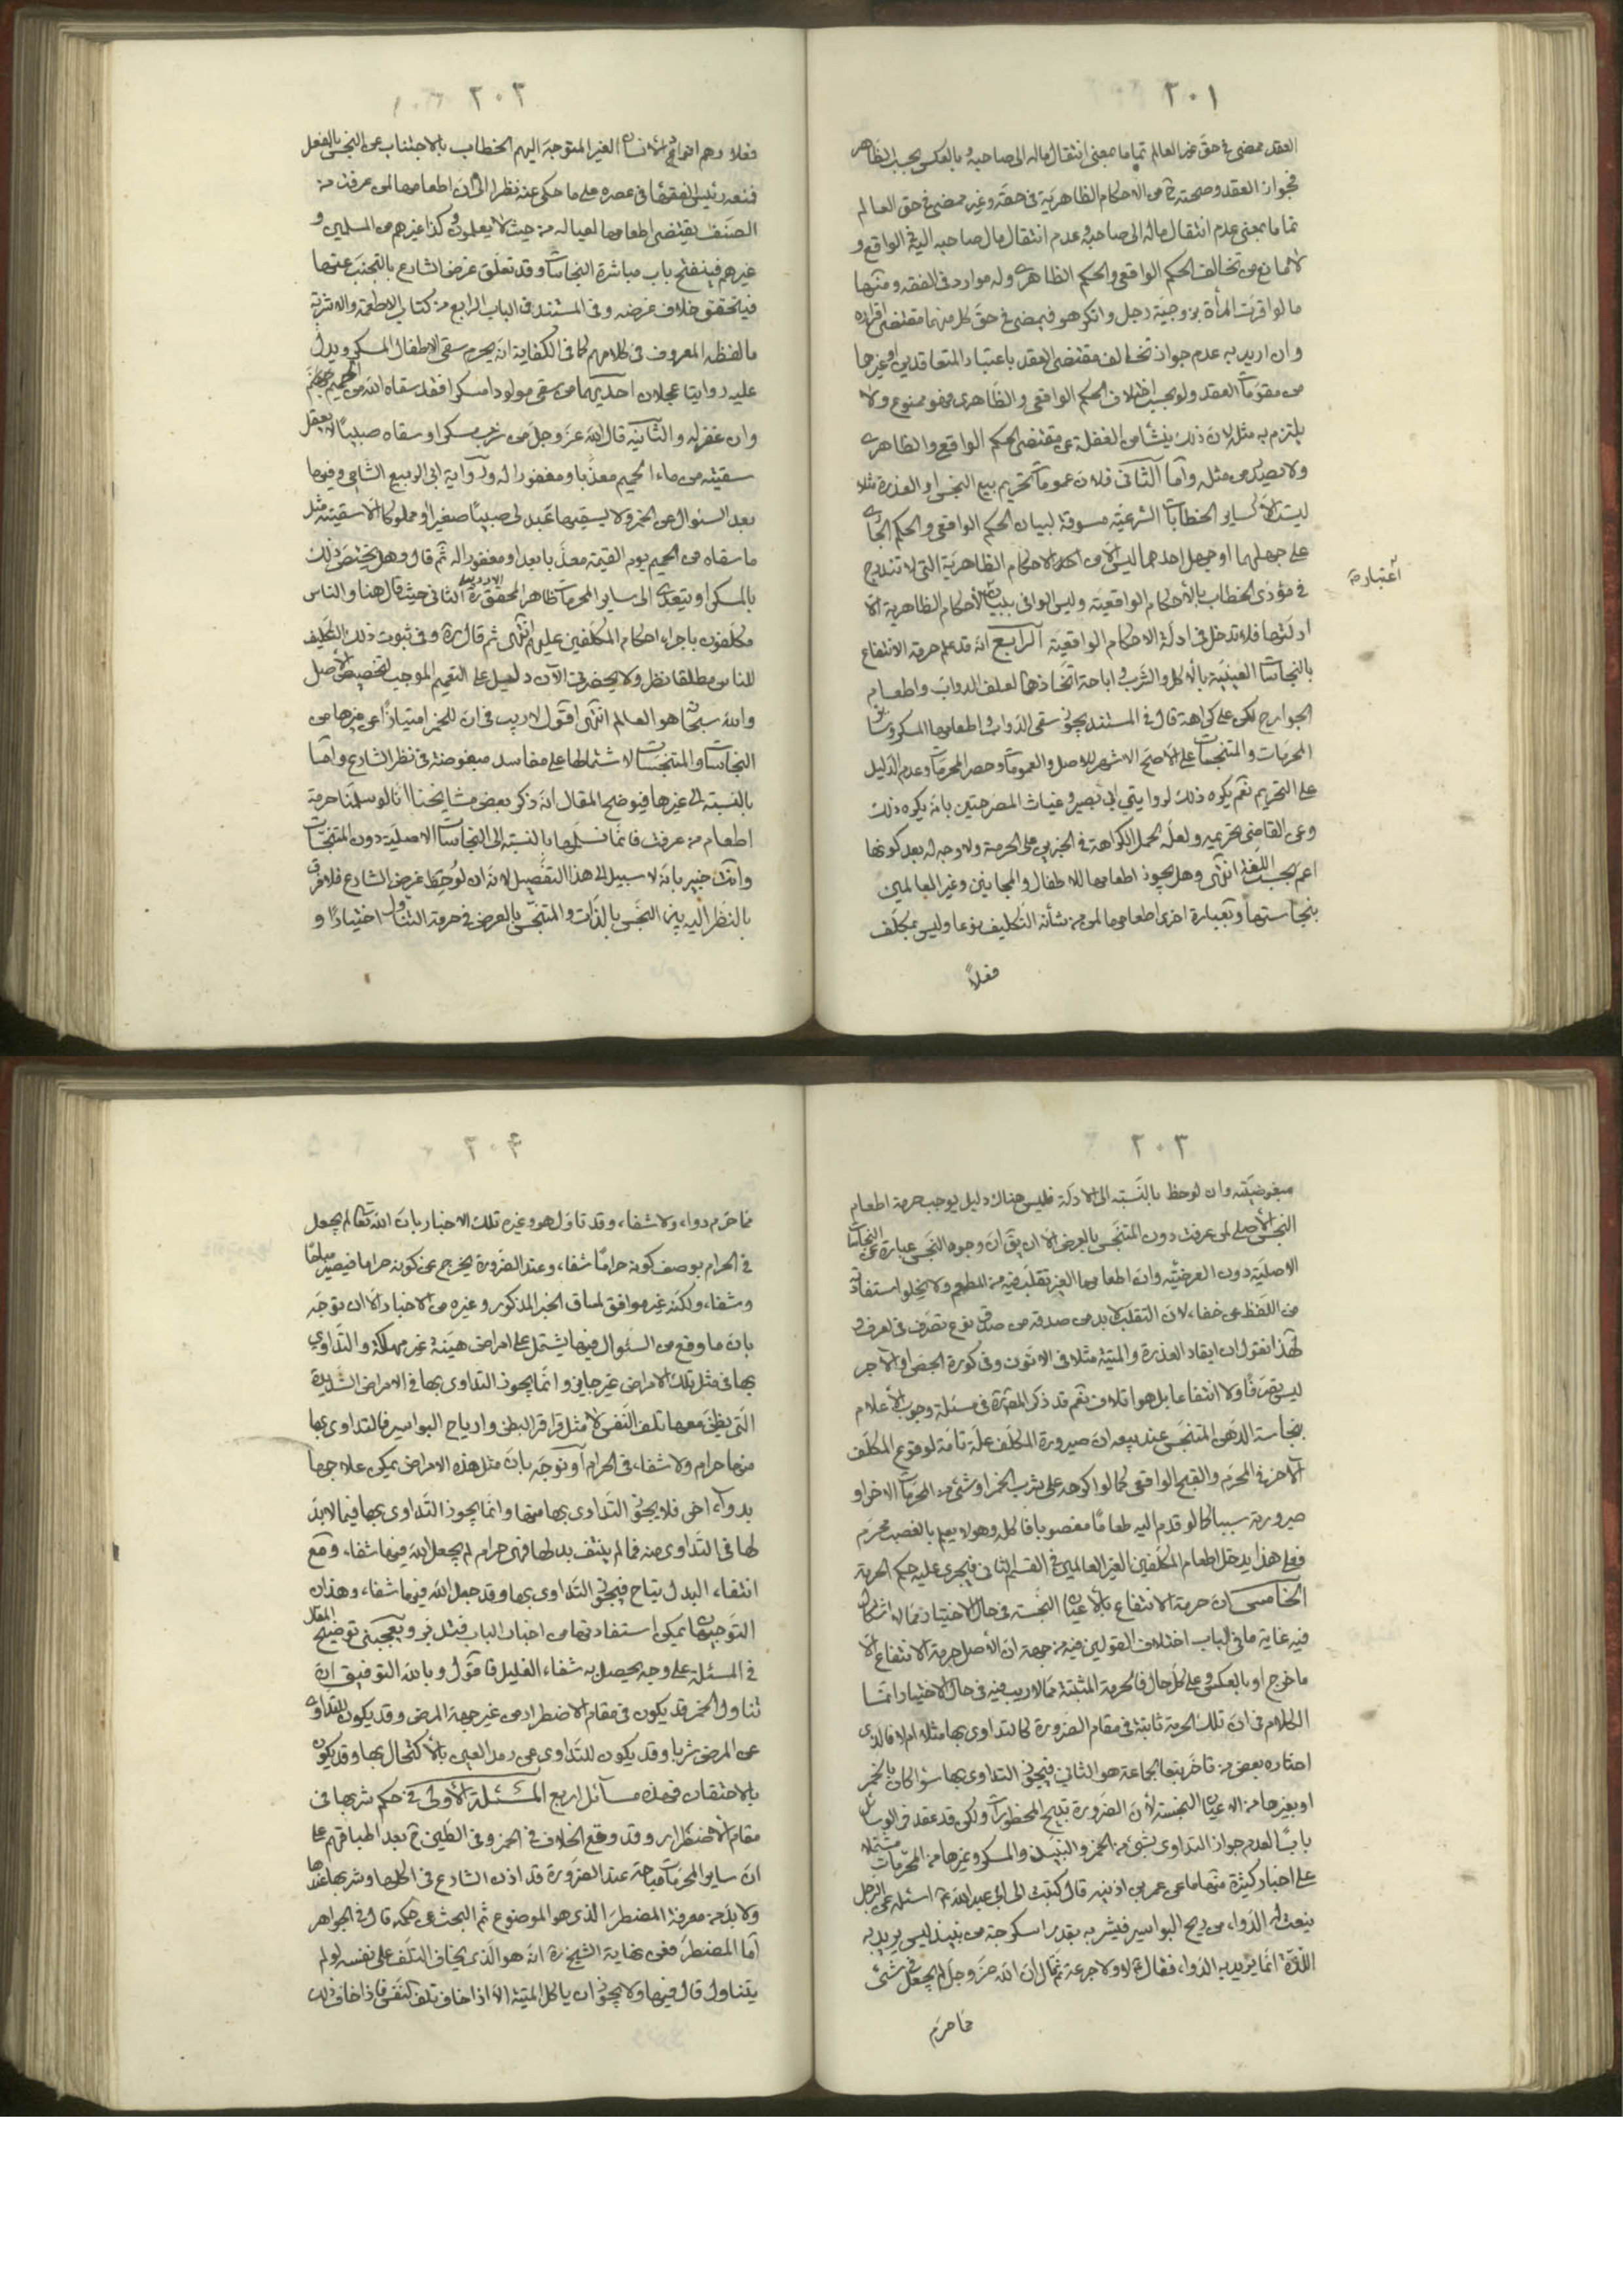 ٢٠١
العقد ممضى فى حق غير العالم تماما بمعنى انتقال ماله الى صاحبه و بالعكس بحسب الظاهر
فجواز العقد و صحته من الاحكام الظاهرية فى حقه و غير ممضى فى حق العالم
تماما بمعنى عدم انتقال ماله الى صاحبه و عدم انتقال مال صاحبه اليه فى الواقع و
لا مانع من تخالف الحكم الواقعى و الحكم الظاهرى و له موارد فى الفقه و منها
ما لو اقرت المرأة بزوجية رجل و انكر هو فيمضى فى حق كل منهما مقتضى اقراره
و ان اريد به عدم جواز تخالف مقتضى العقد باعتبار المتعاقدين او غيرهما
من مقومات العقد و لو بحسب اختلاف الحكم الواقعى و الظاهرى فهو ممنوع و لا
يلتزم به مثله لان ذلك ينشأ من الغفلة عن مقتضى الحكم الواقعى و الظاهرى
و لا يصدر من مثله و اما الثانى فلان عمومات تحريم بيع النجس او العذرة مثلا
ليست الا كساير الخطابات الشرعية مسوقة لبيان الحكم الواقعى و الحكم الجارى
على جهلهما او جهل احدهما ليس الا من الاحكام الظاهرية التى لا تندرج
اعتبارية
فى مؤدى الخطاب بالأحكام الواقعية و ليس الوافى ببيان الأحكام الظاهرية الا
ادلتها فلا تدخل فى ادلة الاحكام الواقعية الرابع انه قد علم حرمة الانتفاع
بالنجاسات العينية بالأكل و الشرب و اباحة اتخاذها لعلف الدواب و اطعام
الجوارح لكن على كراهة قال فى المستند يجوز سقى الدواب و اطعامها المسكر و سائر
المحرمات و المتنجسات على الأصح الاشهر للاصل و العمومات و حصر المحرمات و عدم الدليل
على التحريم نعم يكره ذلك لروايتى ابى بصير و غياث المصرحتين بانه يكره ذلك
و عن القاضى تحريمه و لعله لحمل الكراهة فى الخبرين على الحرمة و لا وجه له بعد كونها
اعم بحسب اللغة انتهى و هل يجوز اطعامها للاطفال و المجانين و غير العالمين
بنجاستها و بعبارة اخرى اطعامها لمن من شأنه التكليف نوعا و ليس بمكلف
فعلاً
٢٠٢
فعلا و هم الغير المتوجه اليهم الخطاب بالاجتناب عن النجس بالفعل
فمنعه رئيس الفقهاء فى عصره على ما حكى عنه نظرا الى ان اطعامها لمن عرفت من
الصنف يقتضى اطعامها لعياله من حيث لا يعلمون و كذا غيرهم من المسلمين و
غيرهم فينفتح باب مباشرة النجاسات و قد تعلق غرض الشارع بالتجنب عنها
فيتحقق خلاف غرضه و فى المستند فى الباب الرابع من كتاب الاطعمة و الاشربة
ما لفظه المعروف فى كلامهم كما فى الكفاية انه يحرم سقى الاطفال المسكر و يدل
عليه روايتا عجلان احديهما من سقى مولودا مسكرا فقد سقاه الله من الحميم
و ان غفر له و الثانية قال الله عز و جل من شرب مسكرا او سقاه صبيا لا يعقل
سقيته من ماء الحميم معذبا و مغفورا له و رواية ابى الربيع الشامى و فيها
بعد السئوال عن الخمر و لا يسقيها عبد لى صبيا صغيرا و مملوكا الا سقيته مثل
ما سقاه من الحميم يوم القيمة معذبا بعد او مغفورا له ثم قال و هل يختص ذلك
بالمسكر او يتعدى الى ساير المحرمات ظاهر المحقق الاردبيلى ره الثانى حيث قال هنا و الناس
مكلفون باجراء احكام المكلفين عليهم انتهى ثم قال ره و فى ثبوت ذلك التكليف
للناس مطلقا نظر و لا يحضرنى الآن دليل على التعميم الموجب لتخصيص الأصل
و الله سبحانه هو العالم انتهى اقول لا ريب فى ان للخمر امتيازاً عن غيرها من
النجاسات و المتنجسات لاشتمالها على مفاسد مبغوضة فى نظر الشارع و اما
بالنسبة الى غيرها فيوضح المقال انه ذكر بعض مشايخنا انا لو سلمنا حرمة
اطعام من عرفت فانما نسلمها بالنسبة الى النجاسات الاصلية دون المتنجسات
و انت خبير بانه لا سبيل الى هذا التفصيل لانه ان لوحظ غرض الشارع فلا فرق
بالنظر اليه بين النجس بالذات و المتنجس بالعرض فى حرمة التناول اختيارًا و
٢٠٣
مبغوضيته و ان لوحظ بالنسبة الى الادلة فليس هناك دليل يوجب حرمة اطعام
النجس الأصلى لمن عرفت دون المتنجس بالعرض الا ان يق ان وجوه النجس عبارة عن النجاسات
الاصلية دون العرضية و ان اطعامها الغير تقلب فيه من المطعم و لا يخلوا استفادته
من اللفظ عن خفاء لان التقلب لا بد من صدقه من صدق نوع تصرف فى العرف و
لهذا نقول ان ايقاد العذرة و الميتة مثلا فى الاتون و فى كورة الجص او الآجر
ليس تصرفًا و لا انتفاعا بل هو اتلاف نعم قد ذكر فى مسئلة وجوب الأعلام
بنجاسة الدهن المتنجس عند بيعه ان صيرورة المكلف علة تامة لوقوع المكلف
الآخر فى المحرم و القبيح الواقعى كما لو اكرهه على شرب الخمر او شئ من المحرمات الاخر او
صيرورته سببا كما لو قدم اليه طعامًا مغصوبا فاكله و هو لا يعلم بالغصب محرم
فعلى هذا يدخل اطعام المكلفين الغير العالمين فى القسم الثانى فيجرى عليه حكم الحرمة
الخامس ان حرمة الانتفاع بالأعيان النجسة فى حال الاختيار مما لا اشكال
فيه غاية ما فى الباب اختلاف القولين فيه من جهة ان الأصل حرمة الانتفاع الا
ما خرج او بالعكس و على كل حال فالحرمة المثبتة مما لا ريب فيه فى حال الاختيار انما
الكلام فى ان تلك الحرمة ثابتة فى مقام الضرورة كالتداوى بها مثلا ام لا فالذى
اختاره بعض من تاخر تبعا لجماعة هو الثانى فيجوز التداوى بها سواء كان بالخمر
او بغيرها من الاعيان النجسة لأن الضرورة تبيح المحظورات و لكن قد عقد فى الوسائل
بابًا لعدم جواز التداوى بشئ من الخمر و النبيذ و المسكر و غيرها من المحرمات مشتملا
على اخبار كثيرة منها ما عن عمر بن اذينه قال كتبت الى ابى عبد الله ع اسئله عن الرجل
ينعت له الدواء من ريح البواسير فيشربه بقدر اسكرجة من نبيذ ليس يريد به
اللذة انما يريد به الدواء فقال ع لا و لا جرعة ثم قال ان الله عز و جل لم يجعل فى شئ
مما حرم
٢٠٤
مما حرم دواء و لا شفاء و قد تاول هو و غيره تلك الاخبار بان الله تعالى لم يجعل
فى الحرام بوصف كونه حرامًا شفاء و عند الضرورة يخرج عن كونه حراما فيصير مباحًا
و شفاء و لكنه غير موافق لمساق الخبر المذكور و غيره من الاخبار الا ان يوجه
بان ما وقع من السئوال فيها يشتمل على امراض هينة غير مهلكة و التداوى
بها فى مثل تلك الامراض غير جايز و انما يجوز التداوى بها فى الامراض الشديدة
التى يظن معها تلف النفس لا مثل قراقر البطن و ارياح البواسير فالتداوى بها
منها حرام و لا شفاء فى الحرام او يوجه بان مثل هذه الامراض يمكن علاجها
بدواء اخر فلا يجوز التداوى بها منها و انما يجوز التداوى بها فيما لا بد
لها فى التداوى منه فما لم ينتف بدلها فهى حرام لم يجعل الله فيها شفاء و مع
انتفاء البدل يتاح فيجوز التداوى بها و قد جعل الله فيها شفاء و هذان
التوجيهان يمكن استفادتهما من اخبار الباب فتدبر و يعجبنى توضيح المقال
فى المسئلة على وجه يحصل به شفاء الغليل فاقول و بالله التوفيق ان
تناول الخمر قد يكون فى مقام الاضطرار من غير جهة المرض و قد يكون للتداوى
عن المرض شربا و قد يكون للتداوى عن رمد العين بالأكتحال بها و قد يكون
بالاحتقان فهذه مسائل اربع المسئلة الأولى فى حكم شربها فى
مقام الاضطرار و قد وقع الخلاف فى الخمر و فى الطين بعد اطباقهم على
ان ساير المحرمات مباحة عند الضرورة قد اذن الشارع فى اكلها و شربها عندها
و لا بد من معرفة المضطر الذى هو الموضوع ثم البحث عن حكمه قال فى الجواهر
اما المضطر فعن نهاية الشيخ ره انه هو الذى يخاف التلف على نفسه لو لم
يتناول قال فيها و لا يجوز ان ياكل الميتة الا اذا خاف تلف النفس فاذا خاف ذلك